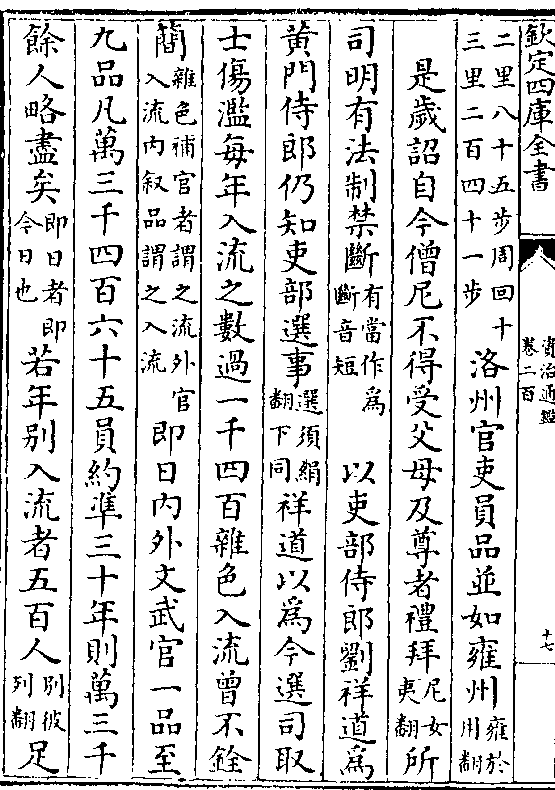 欽定四庫全書
資治通鑑
卷二百
十七
二里八十五步周回十
三里二百四十一步
洛州官吏員品並如雍州
雍於
用翻
是歲詔自今僧尼不得受父母及尊者禮拜
尼女
夷翻
所
司明有法制禁斷
有當作爲
斷音短
以吏部侍郎劉祥道爲
黄門侍郎仍知吏部選事
選須絹
翻下同
祥道以爲今選司取
士傷濫每年入流之數過一千四百雜色入流曾不銓
簡
雜色補官者謂之流外官
入流内叙品謂之入流
即日内外文武官一品至
九品凡萬三千四百六十五員約準三十年則萬三千
餘人略盡矣
即日者即
今日也
若年别入流者五百人
别彼
列翻
足